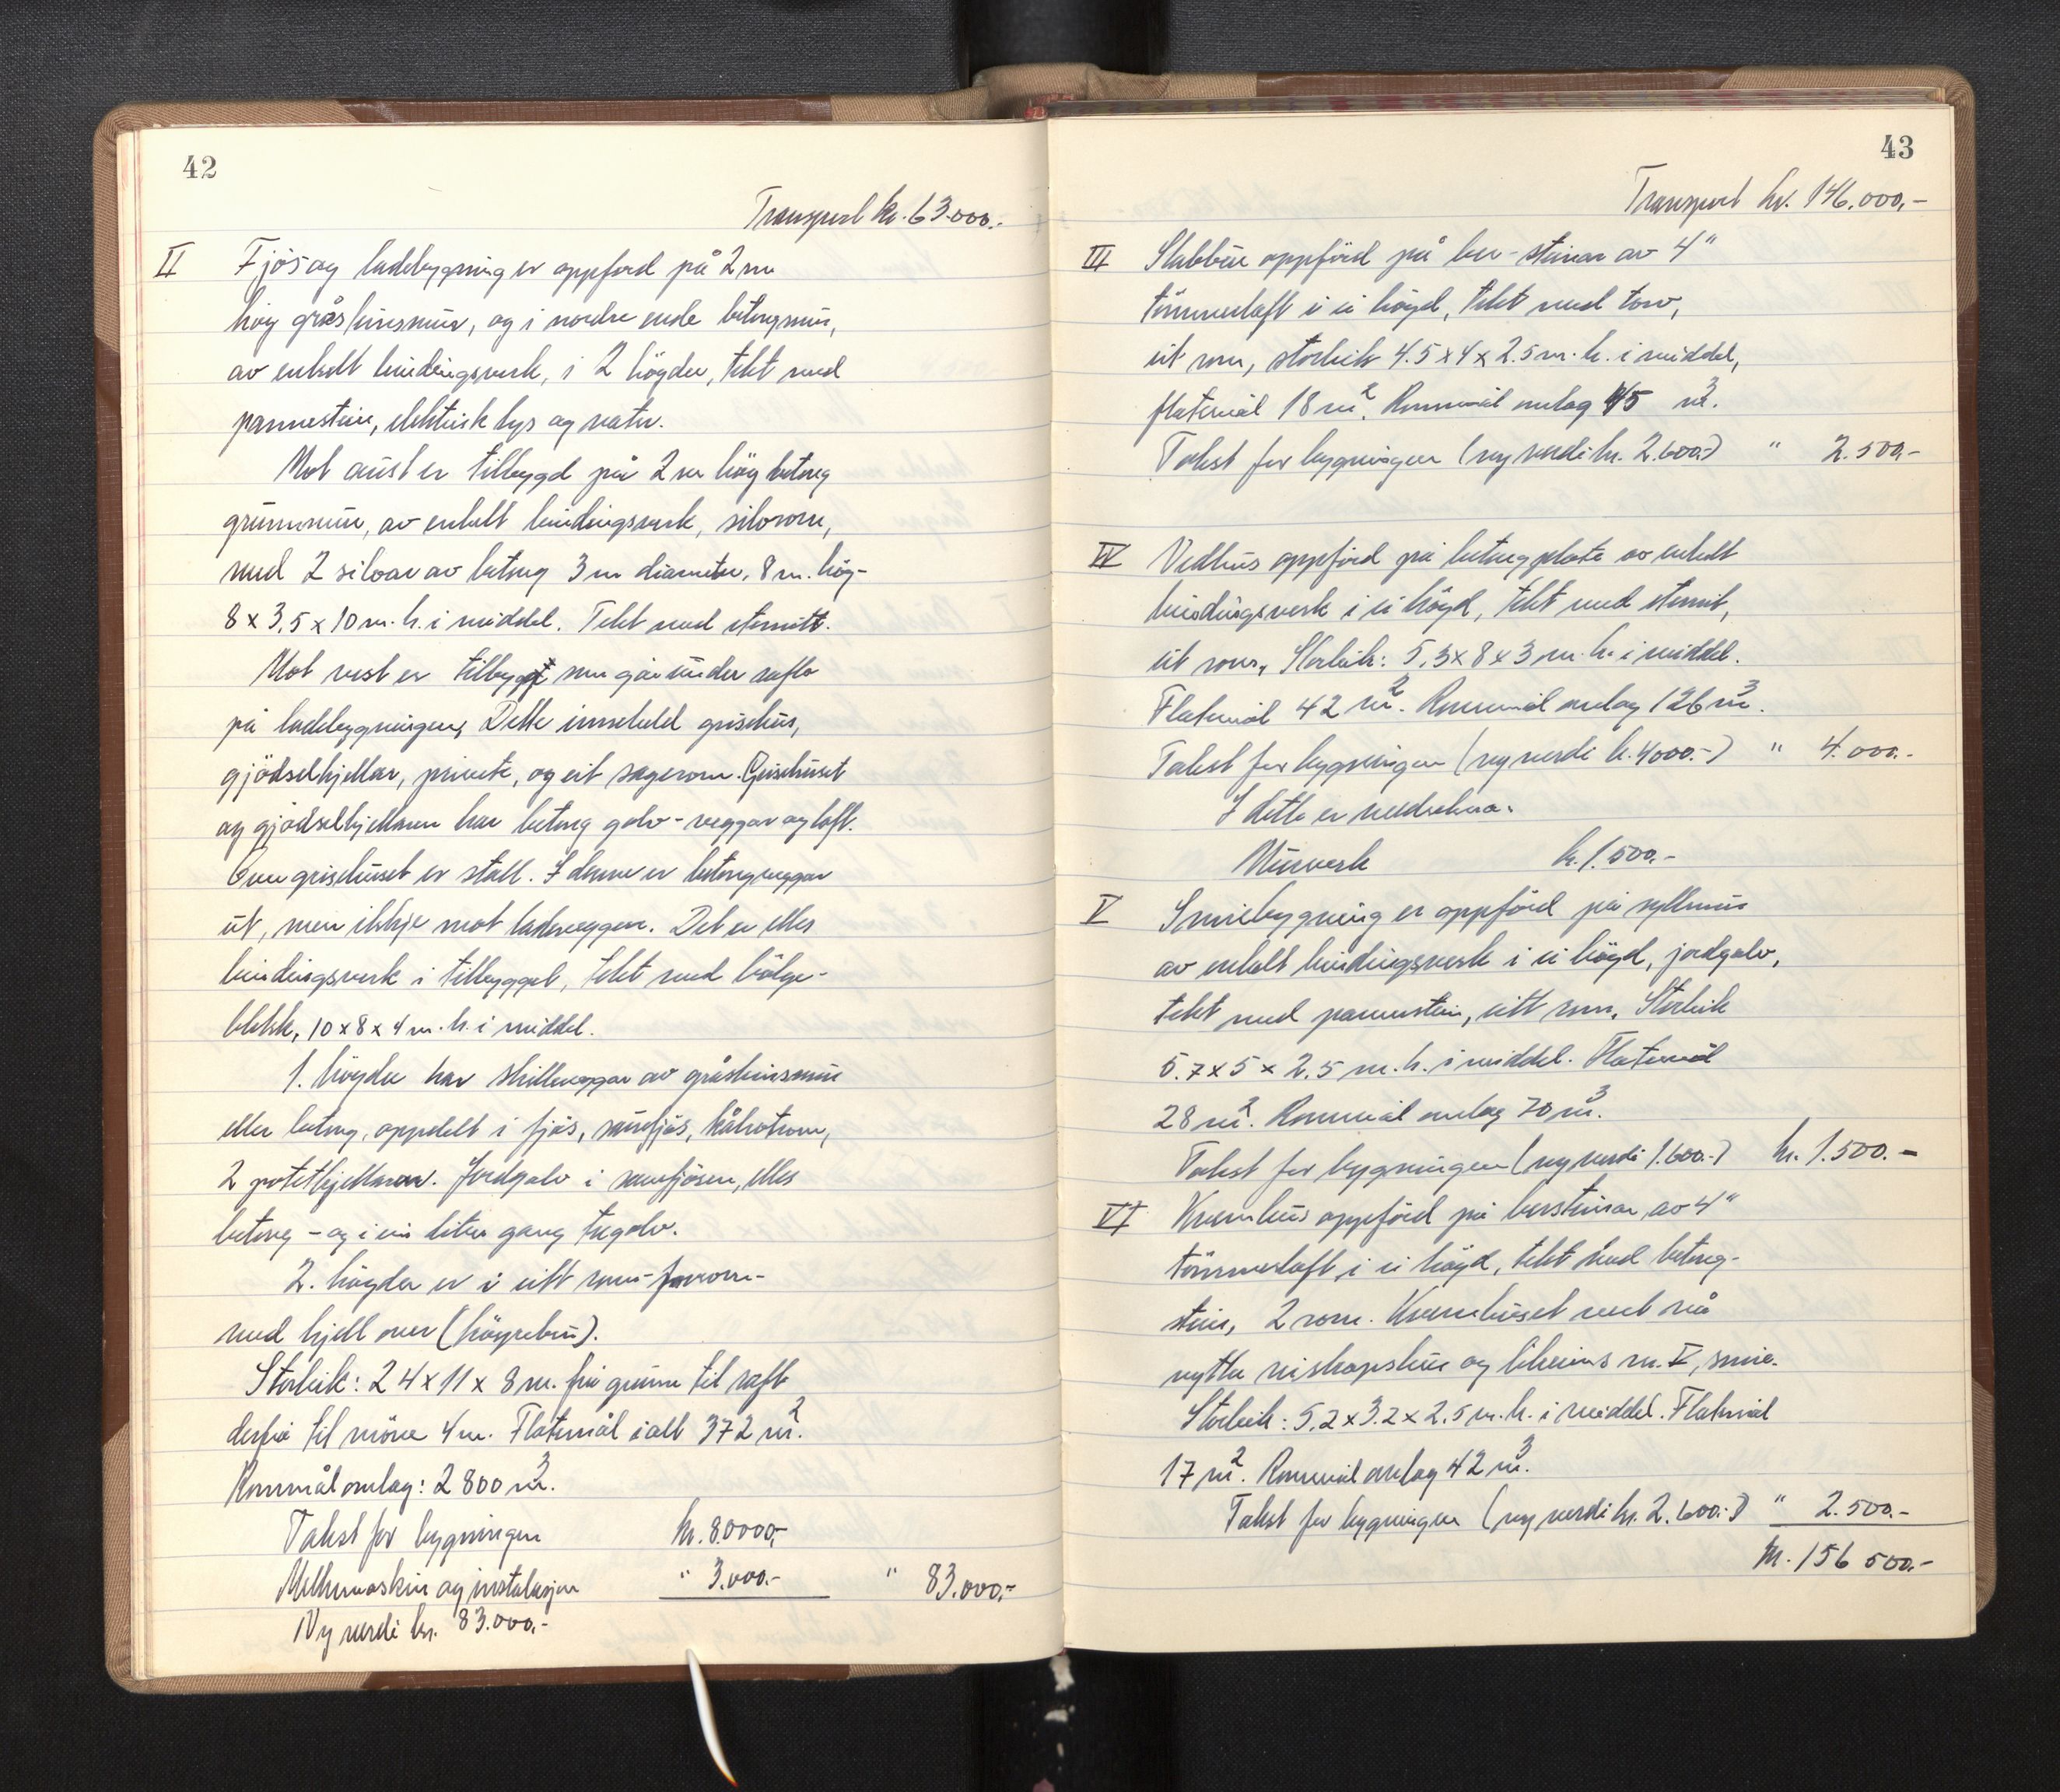 42
Transport kr. 63.000.-
II Fjös og ladebygning er oppförd på 2 m
hög gråsteinsmur, og i nordre ende betongmur,
av enkelt bindingsverk, i 2 högder, tekt med
pannestein, elektrisk lys og vatn.
Mot aust er tilbygd på 2 m hög betong
grunnmur, av enkelt bindingsverk, silorom,
med 2 siloar av betong 3 m diameter, 8 m. hög-
8 x 3,5 x 10 m. h. i middel. Tekt med eternitt.
Mot vest er tilbygg som går under rafto
på ladebygningen, Dette inneheld grisehus,
gjödselkjellar, privete, og eit sagerom. Grisehuset
og gjödselkjellaren har betong golv - veggar og loft.
Over grisehuset er stall. I denne er betongveggar
ut, men ikkje mot ladeveggen. Det er elles
bindingsverk i tilbygget, tekt med bölge-
blekk, 10 x 8 x 4 m. h. i middel.
1. högder har skilleveggar av gråsteinsmur
eller betong, oppdelt i fjös, sauefjös, kålrotrom,
2 potetkjellarar. Jordgolv i sauefjösen, elles
betong - og i ein liten gang tregolv.
2. högder er i eitt rom - forrom -
med hjell over (högrebru).
Storleik: 24 x 11 x 8 m. frå grunn til raft
derfrå til möne 4 m. Flatemål i alt 372 m².
Rommål omlag: 2800 m³.
Takst for bygningen kr. 80000,-
Melkemaskin og instalasjon " 3.000.- " 83.000,-
Ny verdi kr. 83.000,-
43
Transport kr. 146.000,-
III Stabbur oppförd på ber-steinar av 4"
tömmerlaft i ei högd, tekt med torv,
eit rom, storleik 4.5 x 4 x 2.5 m. h. i middel,
flatemål 18 m². Rommål omlag 45 m³.
Takst for bygningen (ny verdi kr. 2.600.-) " 2.500,-
IV Vedhus oppförd på betongplate av enkelt
bindingsverk i ei högd, tekt med eternit,
eit rom, Storleik: 5,3 x 8 x 3 m. h. i middel.
Flatemål 42 m². Rommål omlag 126 m³.
Takst for bygningen (ny verdi k. 4000.-) " 4.000.-
I dette er medrekna.
Murverk k. 1.500.-
V Smiebygning er oppförd på syllmur
av enkelt bindingsverk i ei högd, jordgolv,
tekt med pannestein, eitt rom, Storleik
5.7 x 5 x 2.5 m. h. i middel. Flatemål
28 m². Rommål omlag 70 m³.
Takst for bygningen (ny verdi 1.600.-) kr. 1.500.-
VI Kvernhus oppförd på bersteinar av 4"
tömmerlaft i ei högd, tekt med betong-
stein, 2 rom. Kvernhuset vert nå
nytta reiskapshus og likeeins nr. V, smie.
Storleik: 5,2 x 3.2 x 2,5 m. h. i middel. Flatemål
17 m². Rommål omlag 42 m³.
Takst for bygningen (ny verdi kr. 2.600.-) " 2.500.-
kr. 156 500.-